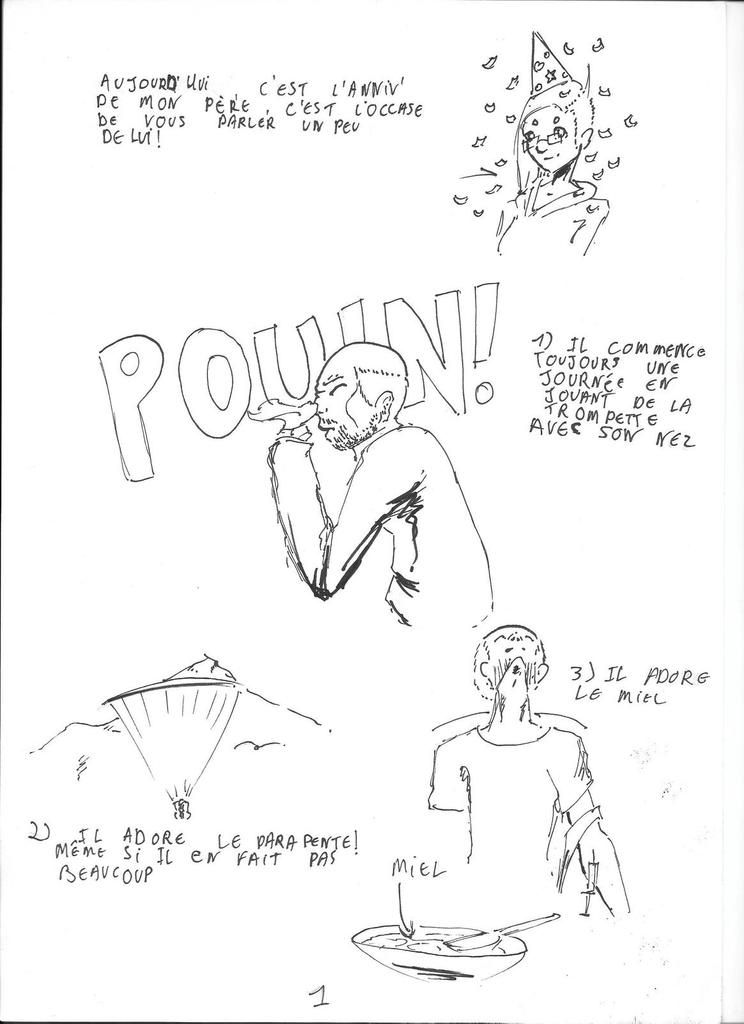 AUJOURD'UUI C'EST L'ANNIV'
DE MON PÈRE, C'EST L'OCCASE
DE VOUS PARLER UN PEU
DE LUI!
POUIN!
1) IL COMMENCE
TOUJOURS UNE
JOURNÉE EN
JOUANT DE LA
TROMPETTE
AVEC SON NEZ
2) IL ADORE LE PARAPENTE!
MÊME SI IL EN FAIT PAS
BEAUCOUP
3) IL ADORE
LE MIEL
MIEL
1